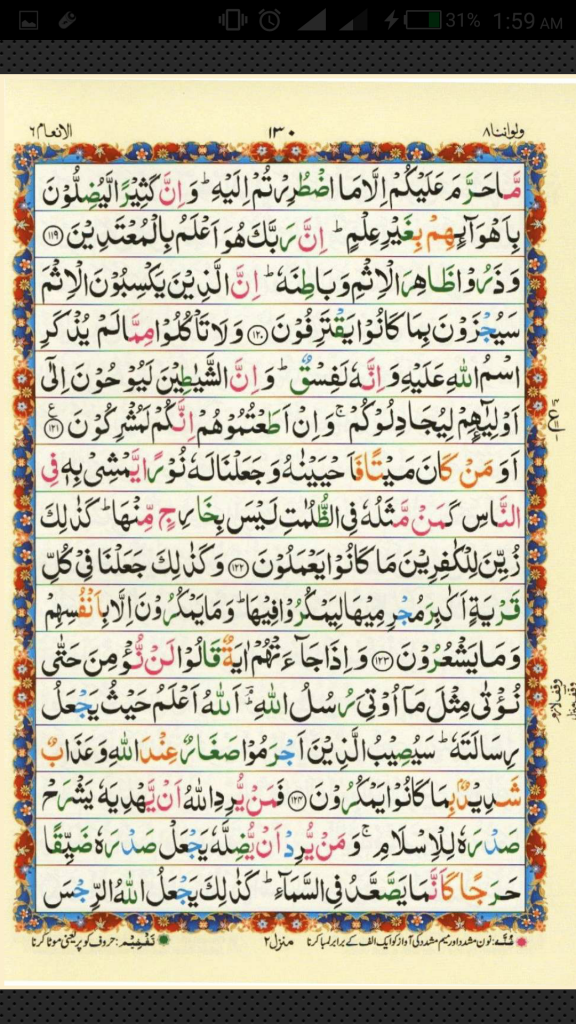 31% 1:59 AM
ولواننا ٨ ١٣٠ الانعام ٦
مَّا حَرَّمَ عَلَيْكُمْ اِلَّا مَا اضْطُرِرْتُمْ اِلَيْهِ ؕ وَ اِنَّ كَثِيْرًا لَّيُضِلُّوْنَ
بِاَهْوَآئِهِمْ بِغَيْرِ عِلْمٍ ؕ اِنَّ رَبَّكَ هُوَ اَعْلَمُ بِالْمُعْتَدِيْنَ ﴿۱۱۹﴾
وَ ذَرُوْا ظَاهِرَ الْاِثْمِ وَ بَاطِنَهٗ ؕ اِنَّ الَّذِيْنَ يَكْسِبُوْنَ الْاِثْمَ
سَيُجْزَوْنَ بِمَا كَانُوْا يَقْتَرِفُوْنَ ﴿۱۲۰﴾ وَ لَا تَاْكُلُوْا مِمَّا لَمْ يُذْكَرِ
اسْمُ اللّٰهِ عَلَيْهِ وَ اِنَّهٗ لَفِسْقٌ ؕ وَ اِنَّ الشَّيٰطِيْنَ لَيُوْحُوْنَ اِلٰۤى
اَوْلِيٰٓـِٕهِمْ لِيُجَادِلُوْكُمْ ۚ وَ اِنْ اَطَعْتُمُوْهُمْ اِنَّكُمْ لَمُشْرِكُوْنَ ﴿۱۲۱﴾ ع
اَوَ مَنْ كَانَ مَيْتًا فَاَحْيَيْنٰهُ وَ جَعَلْنَا لَهٗ نُوْرًا يَّمْشِيْ بِهٖ فِي
النَّاسِ كَمَنْ مَّثَلُهٗ فِي الظُّلُمٰتِ لَيْسَ بِخَارِجٍ مِّنْهَا ؕ كَذٰلِكَ
زُيِّنَ لِلْكٰفِرِيْنَ مَا كَانُوْا يَعْمَلُوْنَ ﴿۱۲۲﴾ وَ كَذٰلِكَ جَعَلْنَا فِيْ كُلِّ
قَرْيَةٍ اَكٰبِرَ مُجْرِمِيْهَا لِيَمْكُرُوْا فِيْهَا ؕ وَ مَا يَمْكُرُوْنَ اِلَّا بِاَنْفُسِهِمْ
وَ مَا يَشْعُرُوْنَ ﴿۱۲۳﴾ وَ اِذَا جَآءَتْهُمْ اٰيَةٌ قَالُوْا لَنْ نُّؤْمِنَ حَتّٰى
نُؤْتٰى مِثْلَ مَاۤ اُوْتِيَ رُسُلُ اللّٰهِ ؔۘؕ اَللّٰهُ اَعْلَمُ حَيْثُ يَجْعَلُ
رِسَالَتَهٗ ؕ سَيُصِيْبُ الَّذِيْنَ اَجْرَمُوْا صَغَارٌ عِنْدَ اللّٰهِ وَ عَذَابٌ
شَدِيْدٌۢ بِمَا كَانُوْا يَمْكُرُوْنَ ﴿۱۲۴﴾ فَمَنْ يُّرِدِ اللّٰهُ اَنْ يَّهْدِيَهٗ يَشْرَحْ
صَدْرَهٗ لِلْاِسْلَامِ ۚ وَ مَنْ يُّرِدْ اَنْ يُّضِلَّهٗ يَجْعَلْ صَدْرَهٗ ضَيِّقًا
حَرَجًا كَاَنَّمَا يَصَّعَّدُ فِي السَّمَآءِ ؕ كَذٰلِكَ يَجْعَلُ اللّٰهُ الرِّجْسَ
غُنَّہ: نون مشدد اور میم مشدد کی آواز کو ایک الف کے برابر لمبا کرنا منزل ٢ تَفْخِیْم: حروف کو پر یعنی موٹا کرنا